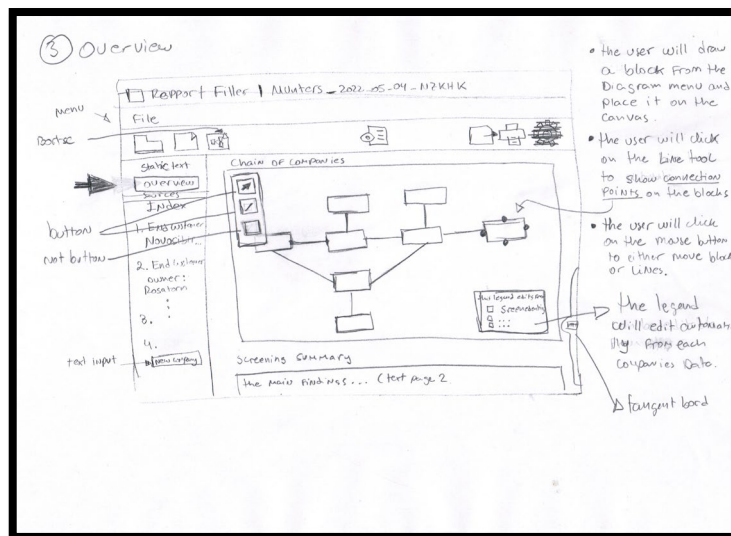 3 Overview
Rapport Filler | Munters_2022-05-04-N7KHK
Menu
File
static text
overview
sources
Index
1. End customer:
2. End customer
owner:
3.
4.
New company
button
not button
text input
Chain OF Companies
Screening Summary
the Main Findings... (text page 2
• the user will draw
a block From the
Diagram menu and
place it on the
canvas.
• the user will click
on the Line tool
to show connection
Points on the blocks
• the user will click
on the mouse button
to either move block
or Lines.
the legend
will edit
from each
Companies Data.